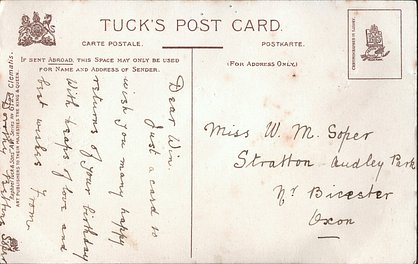 TUCK'S POST CARD.
CARTE POSTALE.
POSTKARTE.
IF SENT ABROAD, THIS SPACE MAY ONLY BE USED
FOR NAME AND ADDRESS OF SENDER.
(FOR ADDRESS ONLY.)
Dear Win.
Just a card to
wish you many happy
returns of your birthday
With heaps of love and
best wishes from
Miss W. M. Soper
Stratton Audley Park
Nr Bicester
Oxon
Clematis.
ART PUBLISHERS TO THEIR MAJESTIES THE KING & QUEEN.